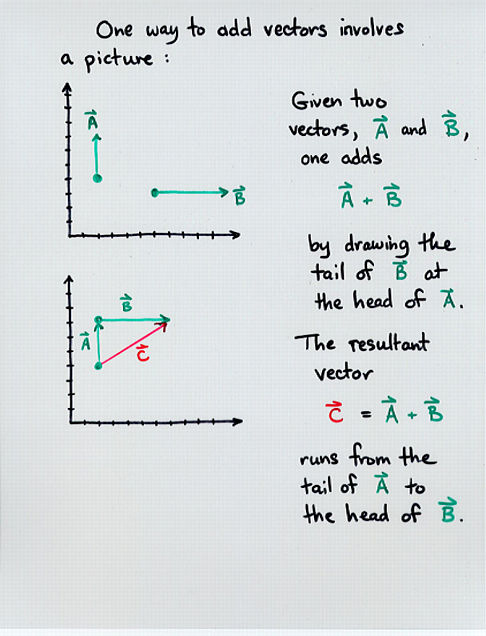 One way to add vectors involves
a picture :
A⃗
B⃗
Given two
vectors, A⃗ and B⃗,
one adds
A⃗ + B⃗
by drawing the
tail of B⃗ at
the head of A⃗.
B⃗
A⃗
C⃗
The resultant
vector
C⃗ = A⃗ + B⃗
runs from the
tail of A⃗ to
the head of B⃗.